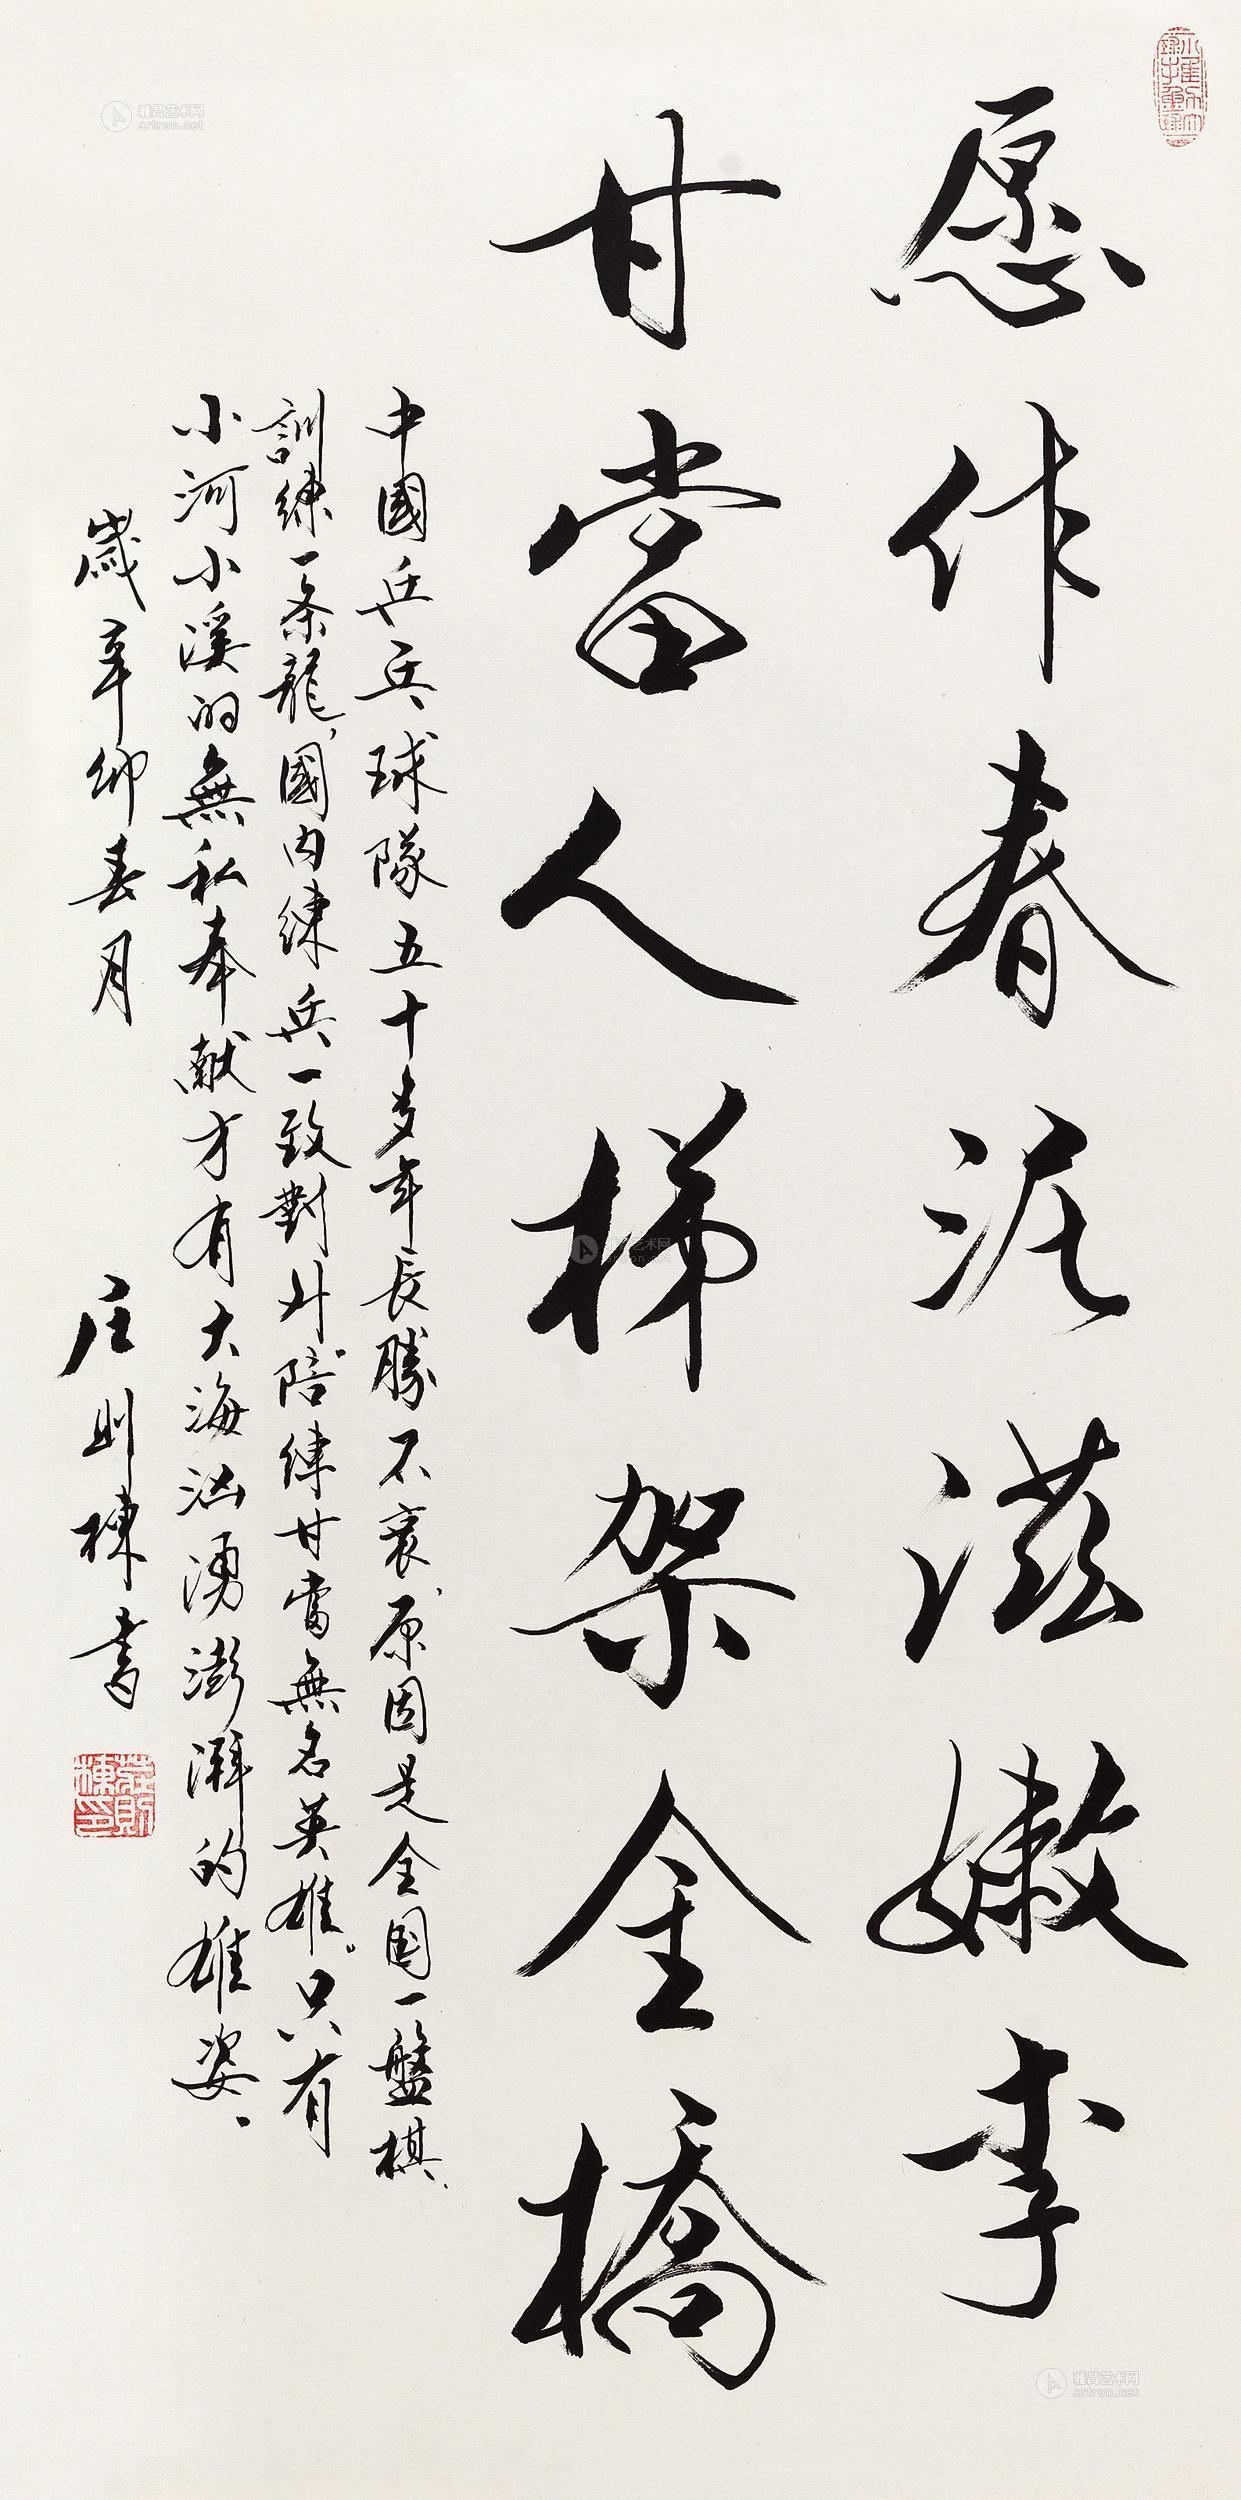 愿作春泥滋嫩李
甘當人梯架金橋
中國乒乓球隊五十多年長勝不衰，原因是全国一盤棋、
訓練一条龍，國内練兵一致對外。陪練甘當無名英雄。只有
小河小溪的無私奉献才有大海汹湧澎湃的雄姿、
歲辛卯春月 庄則棟書
莊則棟印
雅昌艺术网
artron.net
雅昌艺术网
artron.net